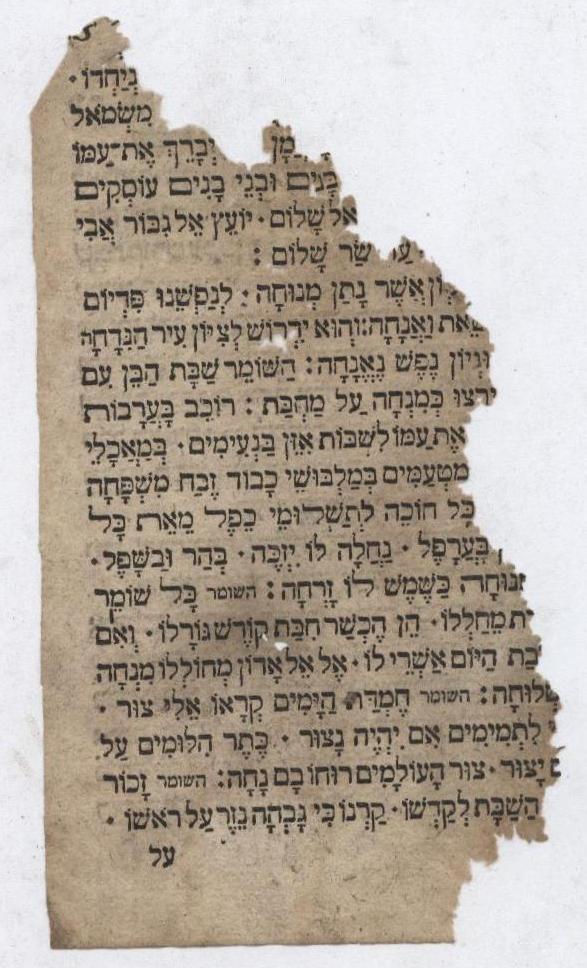 נְיַחְדוֹ ·
מִשְׂמֹאל
מָן יְבָרֵךְ אֶת־עַמּוֹ
בָּנִים וּבְנֵי בָנִים עוֹסְקִים
אל שָׁלוֹם · יוֹעֵץ אֵל גִּבּוֹר אֲבִי
שַׂר שָׁלוֹם :
אֲשֶׁר נָתַן מְנוּחָה · לְנַפְשֵׁנוּ פִּדְיוֹם
וַאֲנָחָה : וְהוּא יִדְרוֹשׁ לְצִיּוֹן עִיר הַנִּדָּחָה
נֶפֶשׁ נֶאֱנָחָה : הַשּׁוֹמֵר שַׁבָּת הַבֵּן עִם
יֵרָצוּ כְּמִנְחָה עַל מַחֲבַת : רוֹכֵב בָּעֲרָבוֹת
אֶת עַמּוֹ לִשְׁבּוֹת אִזֵּן בַּנְּעִימִים · בְּמַאֲכָלֵי
מַטְעַמִּים בְּמַלְבּוּשֵׁי כָבוֹד זֶבַח מִשְׁפָּחָה
כָּל חוֹכֵה לְתַשְׁלוּמֵי כֵפֶל מֵאֵת כָּל
בָּעֲרָפֶל · נַחֲלָה לוֹ יִזְכֶּה · בְּהַר וּבַשָּׁפֶל ·
כַּשֶּׁמֶשׁ לוֹ זָרְחָה : השומר כָּל שׁוֹמֵר
מֵחַלְּלוֹ · הֵן הֶכְשֵׁר חִבַּת קוֹדֶשׁ גּוֹרָלוֹ · וְאִם
הַיּוֹם אַשְׁרֵי לוֹ · אֶל אֵל אָדוֹן מְחוֹלְלוֹ מִנְחָה
שְׁלוּחָה : השומר חֶמְדַּת הַיָּמִים קְרָאוֹ אֵלִי צוּר ·
לִתְמִימִים אִם יִהְיֶה נָצוּר · כֶּתֶר הִלּוּמִים עַל
יָצוּר · צוּר הָעוֹלָמִים רוּחוֹ בָּם נָחָה : השומר זָכוֹר
הַשַּׁבָּת לְקַדְּשׁוֹ · קַרְנוֹ כִּי גָבְהָה נֵזֶר עַל רֹאשׁוֹ ·
על